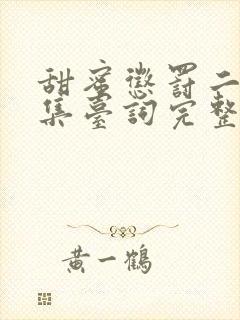 甜蜜懲罰二
集臺詞完整
黃一鶴